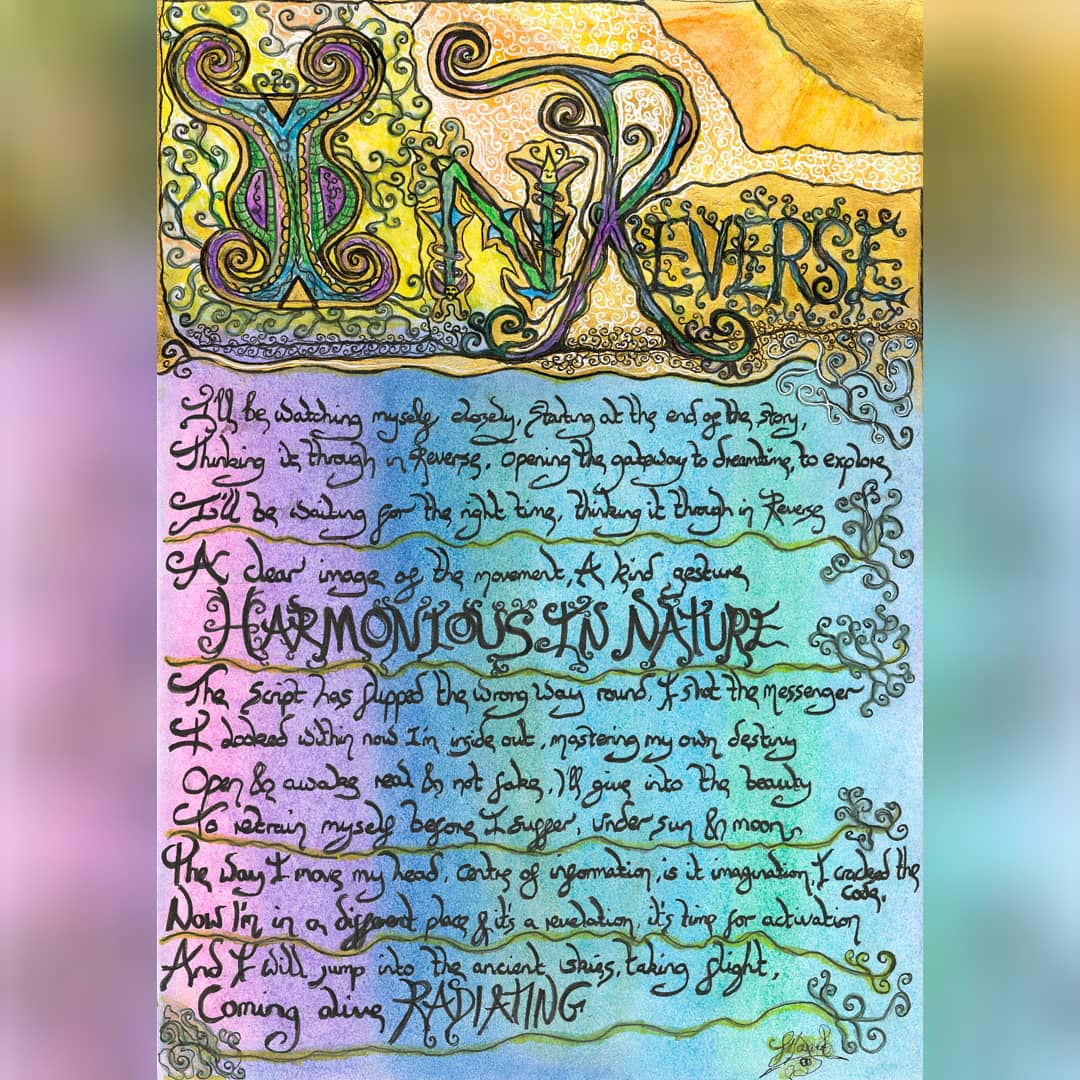 In Reverse
I'll be watching myself closely, Starting at the end of the story,
Thinking it through in Reverse, opening the gateway to dreamtime, to explore
I'll be waiting for the right time, thinking it through in Reverse
A clear image of the movement, A kind gesture
HARMONIOUS IN NATURE
The Script has flipped the wrong way round, I shot the messenger
I looked within now I'm inside out, mastering my own destiny
Open & awake real & not fake, I'll give into the beauty
To retrain myself before I suffer, under sun & moon
The way I move my head, centre of information, is it imagination, I cracked the
code,
Now I'm in a different place & it's a revelation, it's time for activation
And I will jump into the ancient skies, taking flight,
Coming alive RADIATING